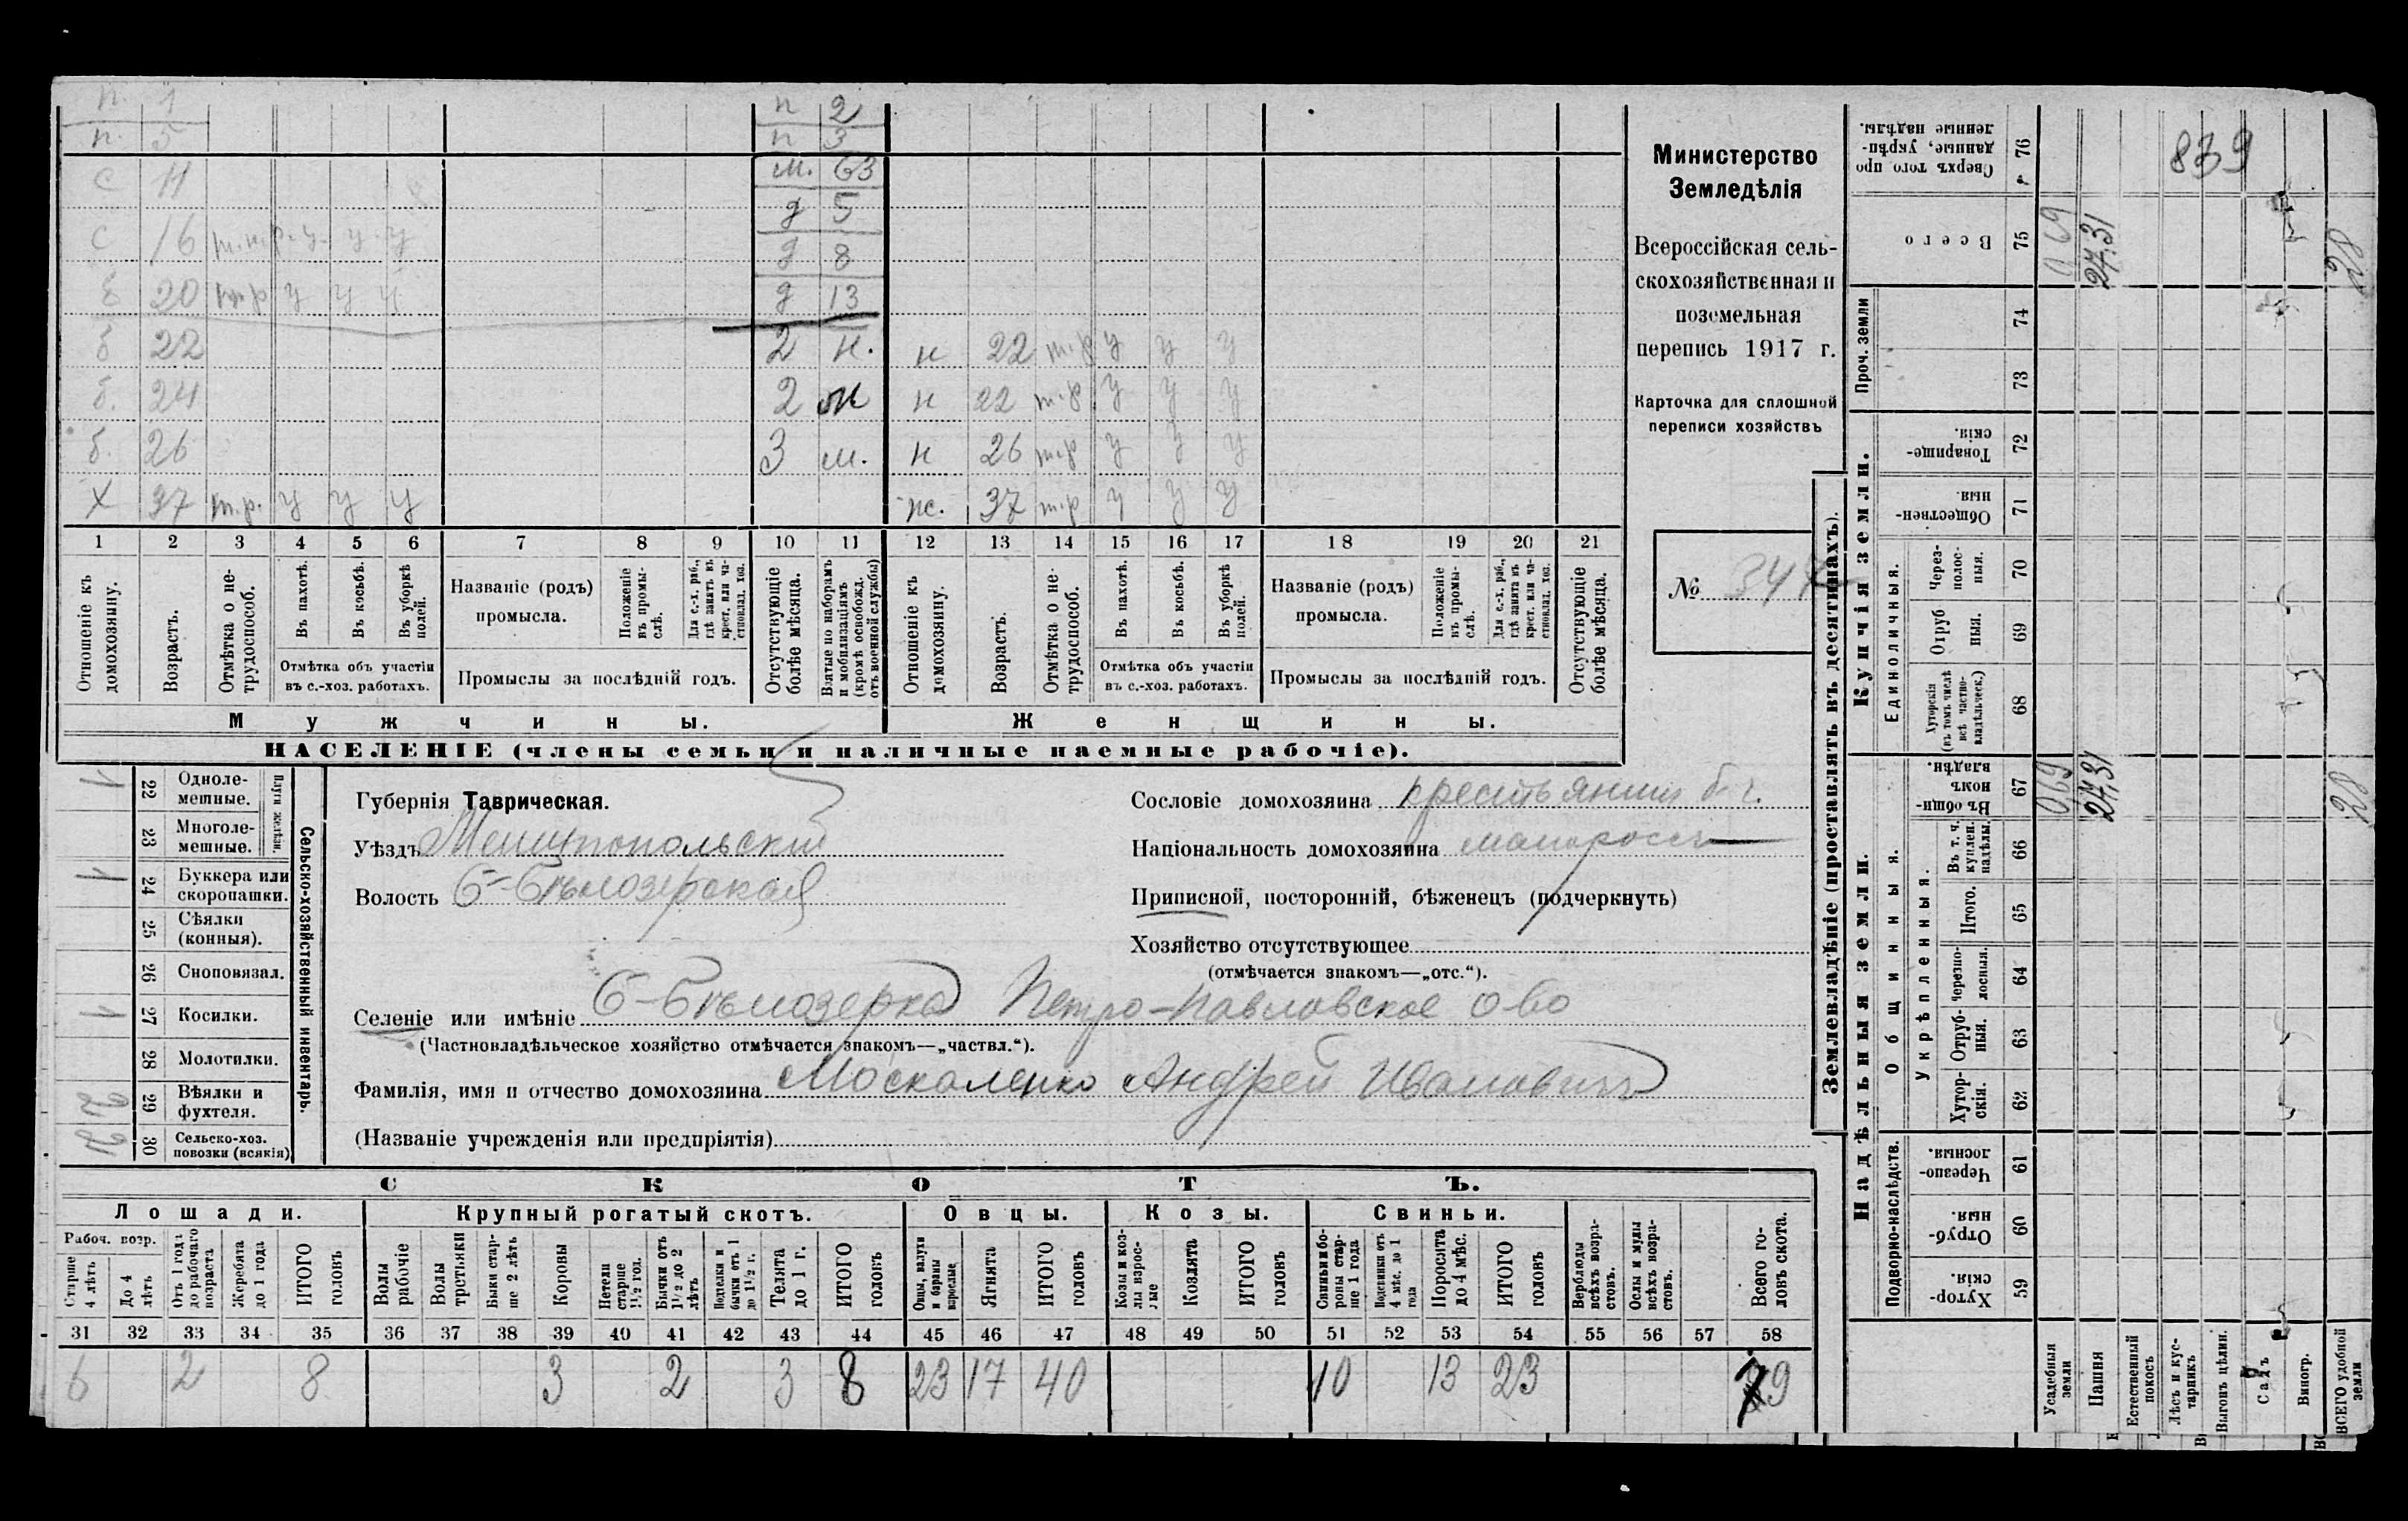 п. 1 п 2
п. 5 п 3
с 11 м. 63
с 16 т.н.р. у. у. у д 5
б 20 у у у д 8
д 13
б 22 2 н. н 22 т.р у у у
б. 24 2 н 22 т.р у у у
б. 26 3 м. н 26 т.р у у у
Х 37 т.р. у у у ж. 37 т.р у у у
1 2 3 4 5 6 7 8 9 10 11 12 13 14 15 16 17 18 19 20 21
Отношеніе къ домохозяину.
Возрастъ.
Отмѣтка о не-трудоспособ.
Въ пахотѣ.
Въ косьбѣ.
Въ уборкѣ полей.
Отмѣтка объ участіи
въ с.-хоз. работахъ.
Названіе (родъ)
промысла.
Положеніе въ промы-слѣ.
Для с.-х. раб., гдѣ занятъ въ крест. или ча-стновлад. хоз.
Промыслы за послѣдній годъ.
Отсутствующіе болѣе мѣсяца.
Взятые по наборамъ и мобилизаціямъ (кромѣ освобожд. отъ военной службы)
Отношеніе къ домохозяину.
Возрастъ.
Отмѣтка о не-трудоспособ.
Въ пахотѣ.
Въ косьбѣ.
Въ уборкѣ полей.
Отмѣтка объ участіи
въ с.-хоз. работахъ.
Названіе (родъ)
промысла.
Положеніе въ промы-слѣ.
Для с.-х. раб., гдѣ занята въ крест. или ча-стновлад. хоз.
Промыслы за послѣдній годъ.
Отсутствующіе болѣе мѣсяца.
Мужчины. Женщины.
НАСЕЛЕНІЕ (члены семьи и наличные наемные рабочіе).
Министерство
Земледѣлія
Всероссійская сель-
скохозяйственная и
поземельная
перепись 1917 г.
Карточка для сплошной
переписи хозяйствъ
№ 347
1 22 Одноле-мешные.
23 Многоле-мешные.
Плуги желѣзн.
1 24 Буккера или скоропашки.
25 Сѣялки (конныя).
26 Сноповязал.
1 27 Косилки.
28 Молотилки.
29 Вѣялки и фухтеля.
2 30 Сельско-хоз. повозки (всякія)
Сельско-хозяйственный инвентарь.
Губернія Таврическая.
Уѣздъ Мелитопольскій
Волость Б-Бѣлозерская
Сословіе домохозяина крестьянин б. г.
Національность домохозяина малоросс
Приписной, посторонній, бѣженец (подчеркнуть)
Хозяйство отсутствующее
(отмѣчается знакомъ—„отс.“).
Селеніе или имѣніе Б-Бѣлозерка Петро-Павловское о-во
(Частновладѣльческое хозяйство отмѣчается знакомъ—„частвл.“).
Фамилія, имя и отчество домохозяина Москаленко Андрей Иванович
(Названіе учрежденія или предпріятія)
СКОТЪ.
Лошади. Крупный рогатый скотъ. Овцы. Козы. Свиньи.
Рабоч. возр.
Старше 4 лѣтъ
До 4 лѣтъ
Отъ 1 года до рабочаго возраста
Жеребята до 1 года
ИТОГО головъ
Волы рабочіе
Волы третьяки
Быки стар-ше 2 лѣтъ
Коровы
Нетели старше 1½ год.
Бычки отъ 1½ до 2 лѣтъ
Подтелки и бычки отъ 1 до 1½ г.
Телята до 1 г.
ИТОГО головъ
Овцы, валухи и бараны взрослые
Ягнята
ИТОГО головъ
Козы и коз-лы взрос-лые
Козлята
ИТОГО головъ
Свиньи и бо-ровы стар-ше 1 года
Подсвинки отъ 4 мѣс. до 1 года
Поросята до 4 мѣс.
ИТОГО головъ
Верблюды всѣхъ возра-стовъ.
Ослы и мулы всѣхъ возра-стовъ.
Всего го-ловъ скота.
31 32 33 34 35 36 37 38 39 40 41 42 43 44 45 46 47 48 49 50 51 52 53 54 55 56 57 58
6 2 8 3 2 3 8 23 17 40 10 13 23 79
Землевладѣніе (проставлять въ десятинахъ).
Надѣльныя земли. Купчія земли. Проч. земли
Подворно-наслѣдств. Общинныя. Укрѣпленныя. Единоличныя.
Сверхъ того про данные, укрѣп-ленные надѣлы. 76 839
Всего 75 0 69 27,31 28
74
73
Товарище-скія. 72
Обществен-ныя. 71
Через-полос-ныя. 70
Отруб ныя. 69
Хуторскія (въ томъ числѣ всѣ частно-владѣльческ.) 68
Въ общи-номъ владѣн. 67 069 27,31 28
Въ т. ч. куплен. надѣлы. 66
Итого. 65
Черезпо-лосныя. 64
Отруб-ныя. 63
Хутор-скія. 62
Черезпо-лосныя. 61
Отруб-ныя. 60
Хутор-скія. 59
Усадебныя земли
Пашня
Естественный покосъ
Лѣсъ и кус-тарникъ
Выгонъ цѣлин.
Садъ
Виногр.
ВСЕГО удобной земли